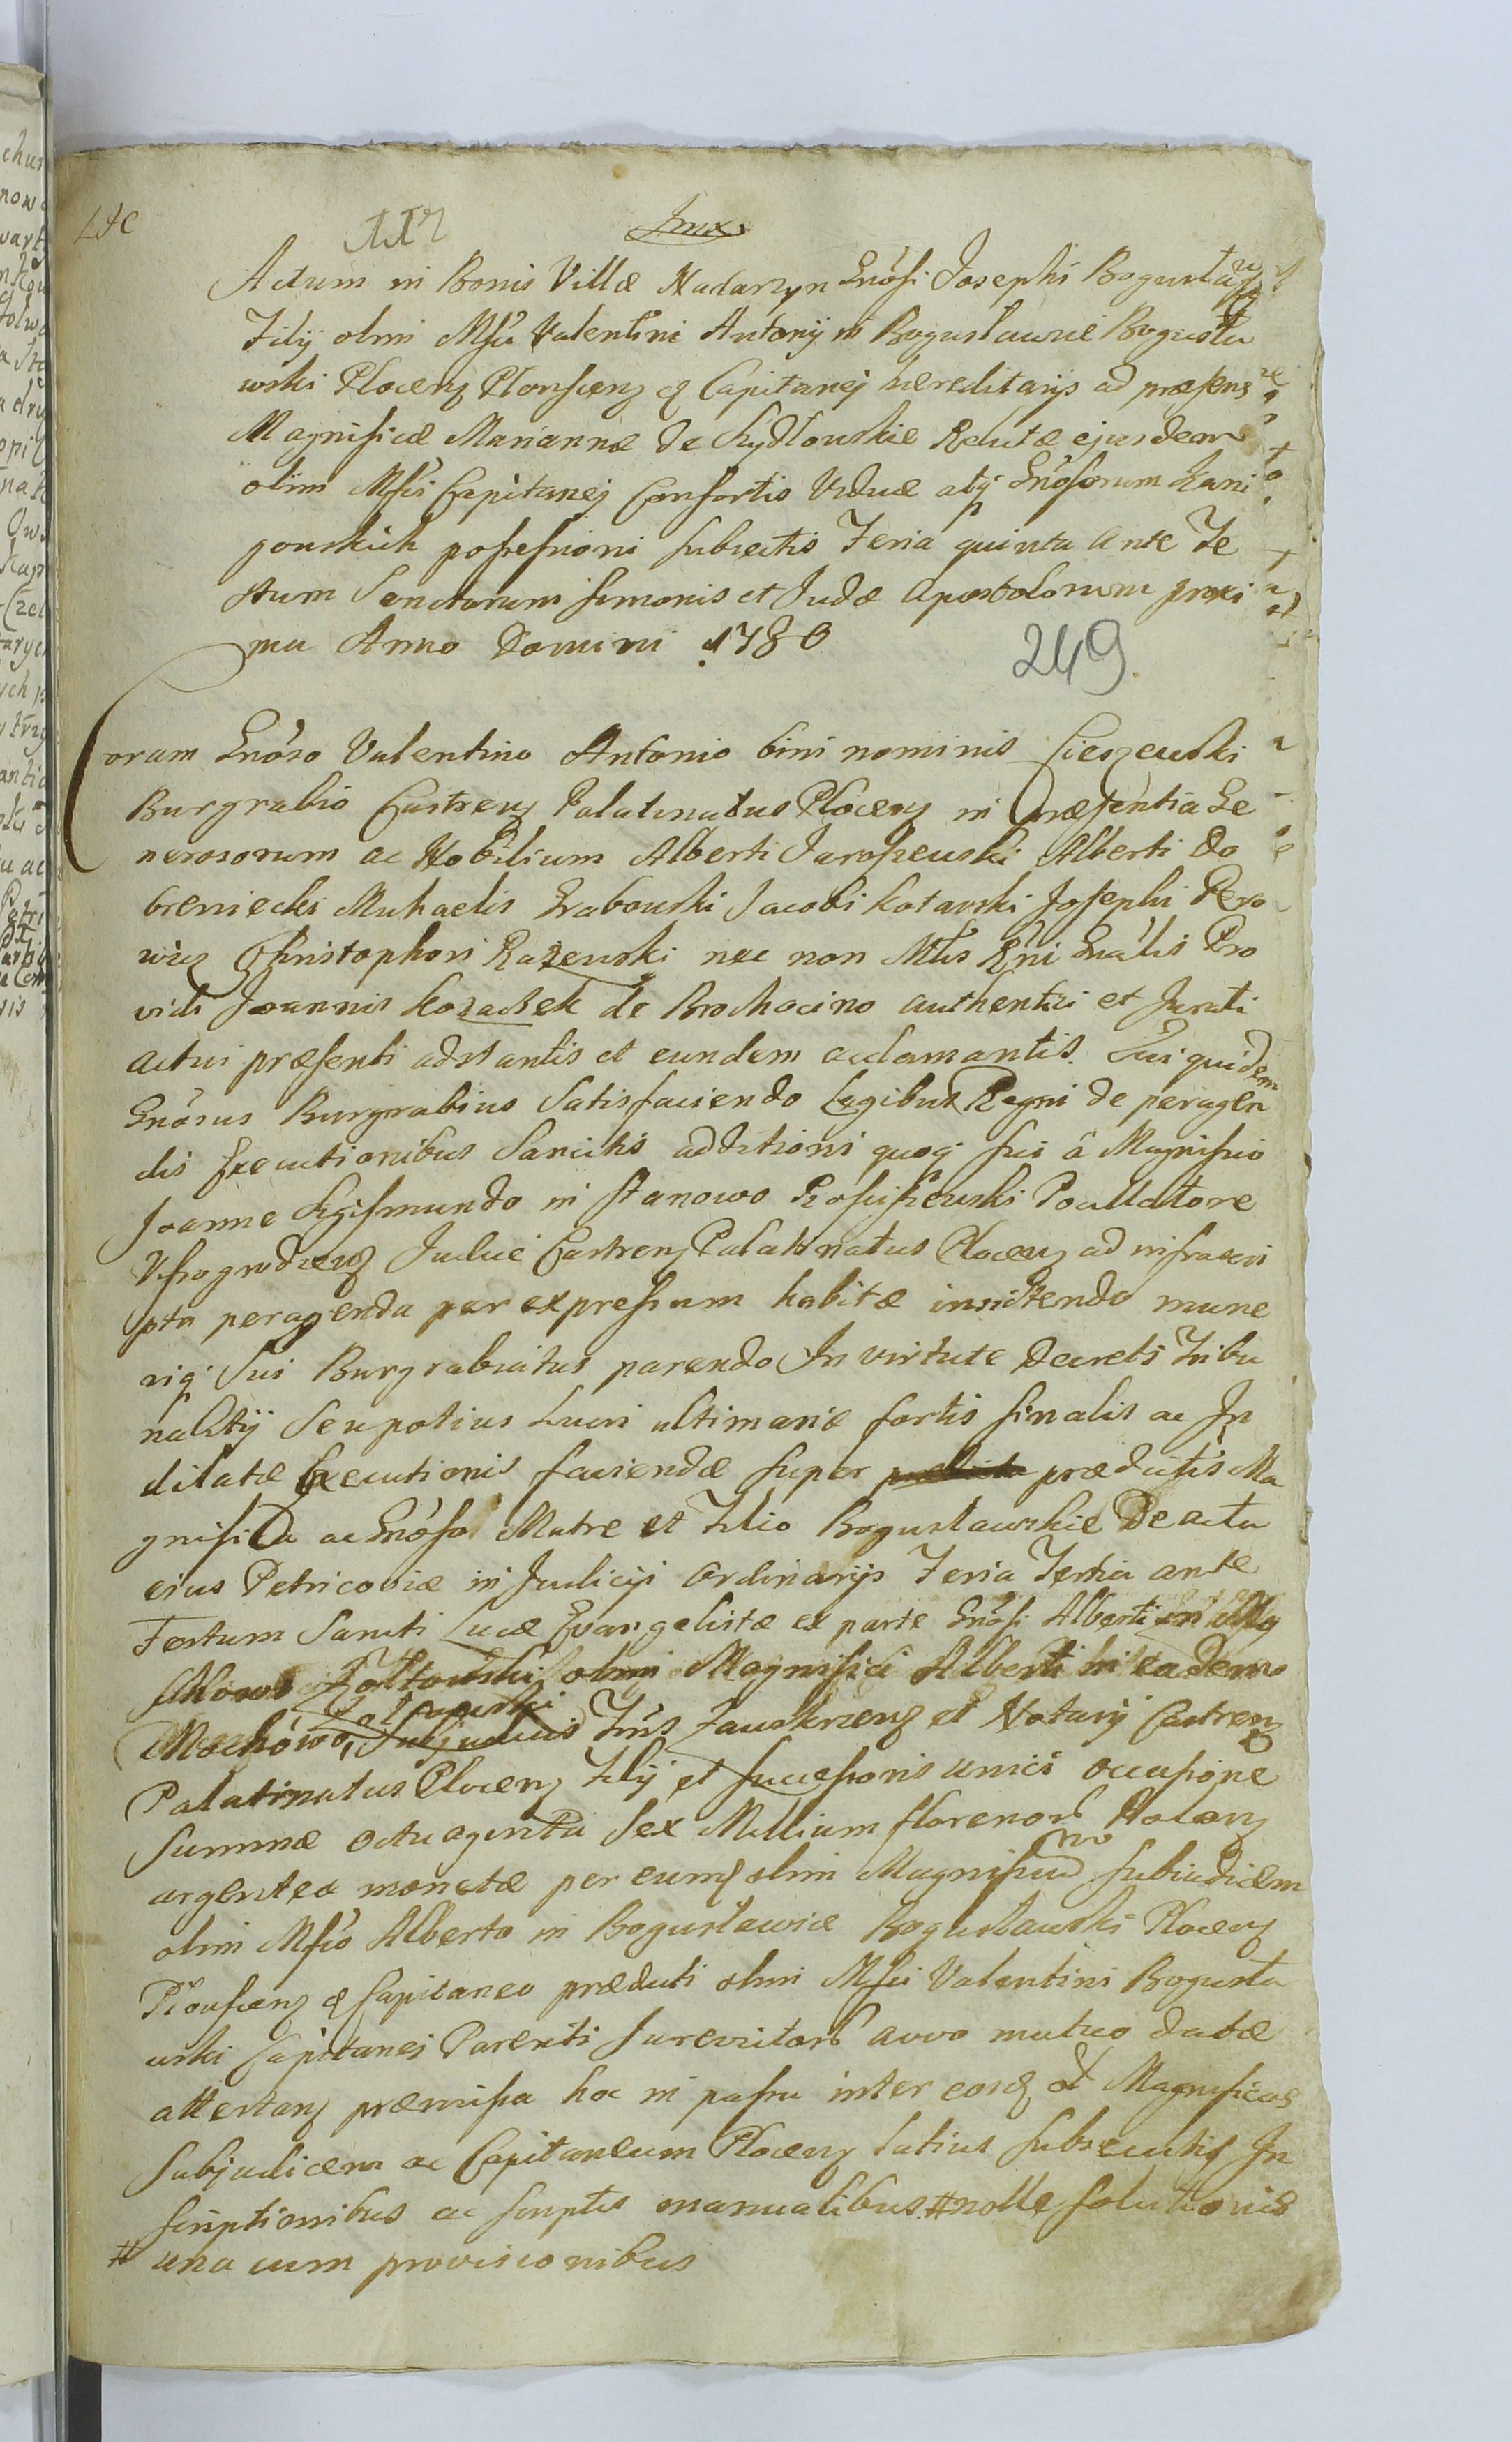 Actum in Bonis Villæ Nadarzyn Gnosi Josephi Bogusław
Filij olim Mfci Valentini Antonij in Bogusławice Bogusła
wski Plocenz Plonscenz q Capitanej hæreditarijs ad præsens
Magnificæ Mariannæ de Szydłowskie Relictæ ejusdem
olim Mfci Capitanej Consortis Viduæ atq Gnosorum Kani
gowskich possessioni subiectis Feria quinta ante Fe
stum Sanctorum Simonis et Judæ Apostolorum proxi
ma Anno Domini 1780
249.
Coram Gnoso Valentino Antonio bini nominis Cieszewski
Burgrabio Castrenz Palatinatus Plocenz in Præsentia Ge
nerosorum ac Nobilium Alberti Jaroszewski Alberti Do
breniecki Michaelis Grabowski Jacobi Kotarski Josephi Pero
wicz Christophori Razewski nec non Mtis Rni Gnalis Pro
vidi Joannis Kozaczek de Brochocino authentici et Jurati
actui præsenti adstantis et eundem acclamantis. Qui quidem
Gnosus Burgrabius Satisfaciendo Legibus Regni de peragen
dis Executionibus Sancitis additioni quoq sui à Magnifico
Joanne Sigismundo in Stanowo Rosciszewski Pocillatore
Wyszogrodzenz Judice Castrenz Palatinatus Plocenz ad infrascri
pta peragenda per expressum habitæ insistendo mune
riq Sui Burgrabiatus parendo In virtute Decreti Tribu
nalitij Seu potius Lucri ultimariæ sortis finalis ac In
dilatæ Executionis faciendæ super prædictis Ma
gnifica ac Gnoso Matre et Filio Bogusławskie De actu
eius Petricoviæ in Judicijs Ordinarijs Feria Tertia ante
Festum Sancti Lucæ Evangelistæ ex parte Gnosi Alberti in Mo
chowo Zołtowski olim Magnifici Alberti in eadem
Mochówo Zołtowski Subjudicis Tris Zawskrzenz et Notarij Castrenz
Palatinatus Plocenz Filij et successoris unici occasione
Summæ octuaginta Sex Millium florenor Polonz
argenteæ monetæ per eumq olim Magnificum Subiudicem
olim Mfco Alberto in Bogusławice Bogusławski Plocenz
Plonscenz q Capitaneo prædicti olim Mfci Valentini Bogusła
wski Capitanei Parenti Jurevictor avvo mutuo datæ
attestanz præmissa hoc in passu inter eosq Magnificos
Subjudicem ac Capitaneum Plocenz latius subsecutis In
scriptionibus ac scriptis manualibus # nolle solutionis
# una cum provisionibus